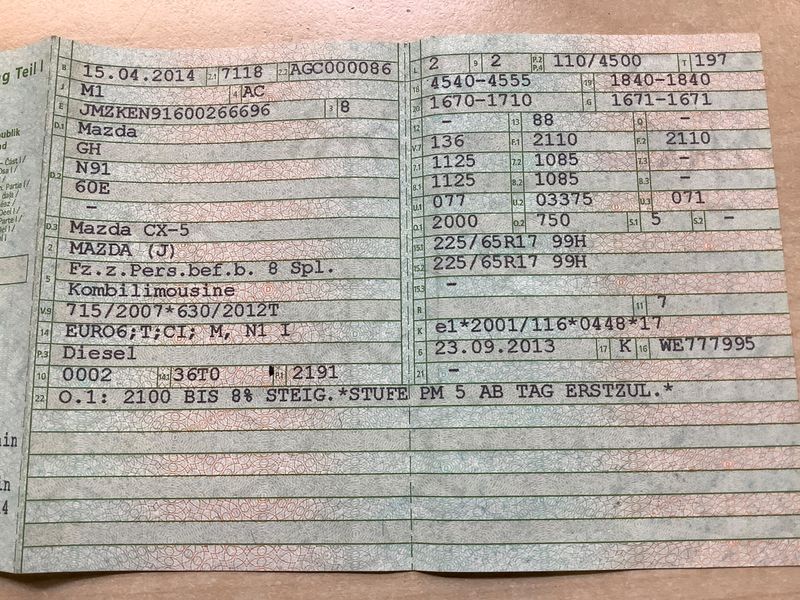 g Teil I
B 15.04.2014 2.1 7118 2.2 AGC000086
J M1 4 AC
E JMZKEN91600266696 3 8
D.1 Mazda
GH
D.2 N91
60E
-
D.3 Mazda CX-5
2 MAZDA (J)
5 Fz.z.Pers.bef.b. 8 Spl.
Kombilimousine
V.9 715/2007*630/2012T
14 EURO6;T;CI; M, N1 I
P.3 Diesel
10 0002 14.1 36T0 P.1 2191
L 2 9 2 P.2 P.4 110/4500 T 197
18 4540-4555 19 1840-1840
20 1670-1710 G 1671-1671
12 - 13 88 Q -
V.7 136 F.1 2110 F.2 2110
7.1 1125 7.2 1085 7.3 -
8.1 1125 8.2 1085 8.3 -
U.1 077 U.2 03375 U.3 071
O.1 2000 O.2 750 S.1 5 S.2 -
15.1 225/65R17 99H
15.2 225/65R17 99H
15.3 -
R 11 7
K e1*2001/116*0448*17
6 23.09.2013 17 K 16 WE777995
21 -
22 O.1: 2100 BIS 8% STEIG.*STUFE PM 5 AB TAG ERSTZUL.*